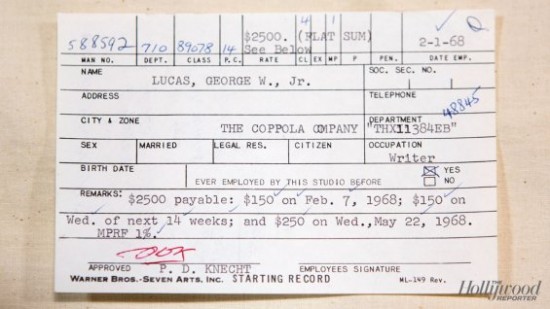 4 1
588592 710 89078 14 $2500. (FLAT SUM) 2-1-68
See Below
MAN NO. DEPT. CLASS P.C. RATE CL EX MP P PEN. DATE EMP.
NAME SOC. SEC. NO.
LUCAS, GEORGE W., Jr.
ADDRESS TELEPHONE
48845
CITY & ZONE DEPARTMENT
THE COPPOLA COMPANY "THX11384EB"
SEX MARRIED LEGAL RES. CITIZEN OCCUPATION
Writer
BIRTH DATE EVER EMPLOYED BY THIS STUDIO BEFORE YES
NO
REMARKS: $2500 payable: $150 on Feb. 7, 1968; $150 on
Wed. of next 14 weeks; and $250 on Wed., May 22, 1968.
MPRF 1%.
APPROVED P. D. KNECHT EMPLOYEES SIGNATURE
WARNER BROS.-SEVEN ARTS, INC. STARTING RECORD ML-149 Rev.
The Hollywood
REPORTER